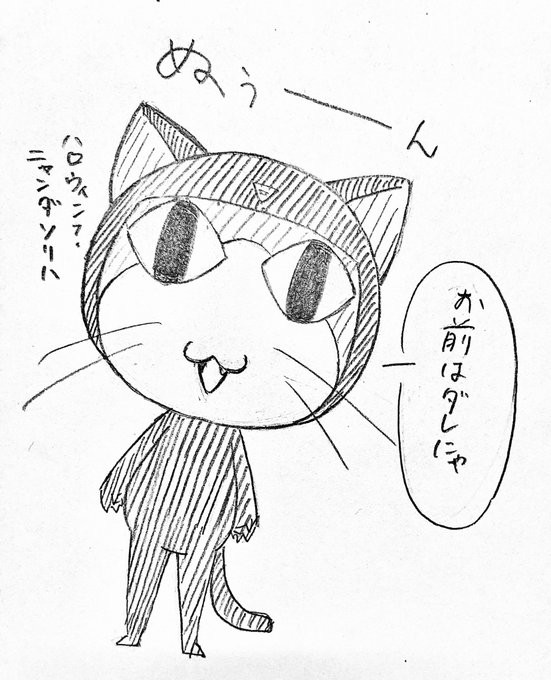 ぬぅーん
お前はダレにゃ
ハロウィン？
ニャンダソリハ